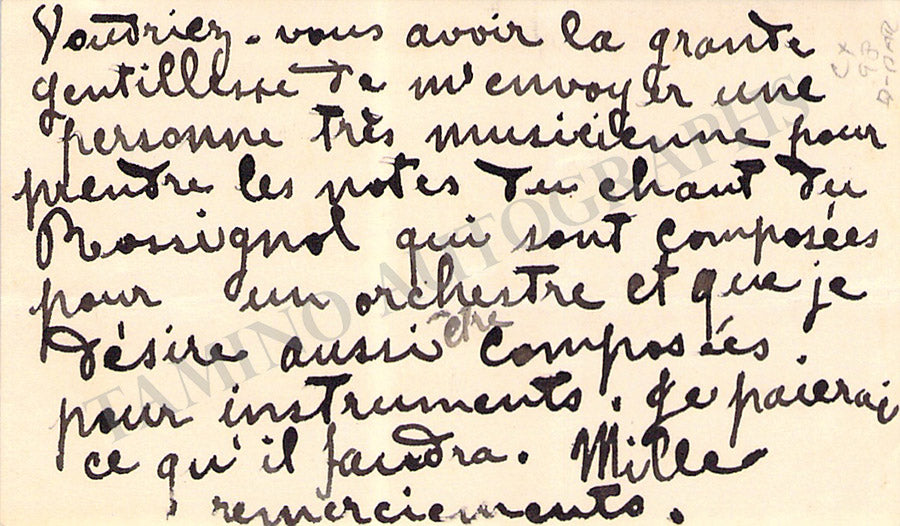 Voudriez-vous avoir la grande
gentillesse de m'envoyer une
personne très musicienne pour
prendre les notes du chant du
Rossignol qui sont composées
pour un orchestre et que je
être
désire aussi composées.
pour instruments. Je paierai
ce qu'il faudra. Mille
remerciements.
TAMINO AUTOGRAPHS